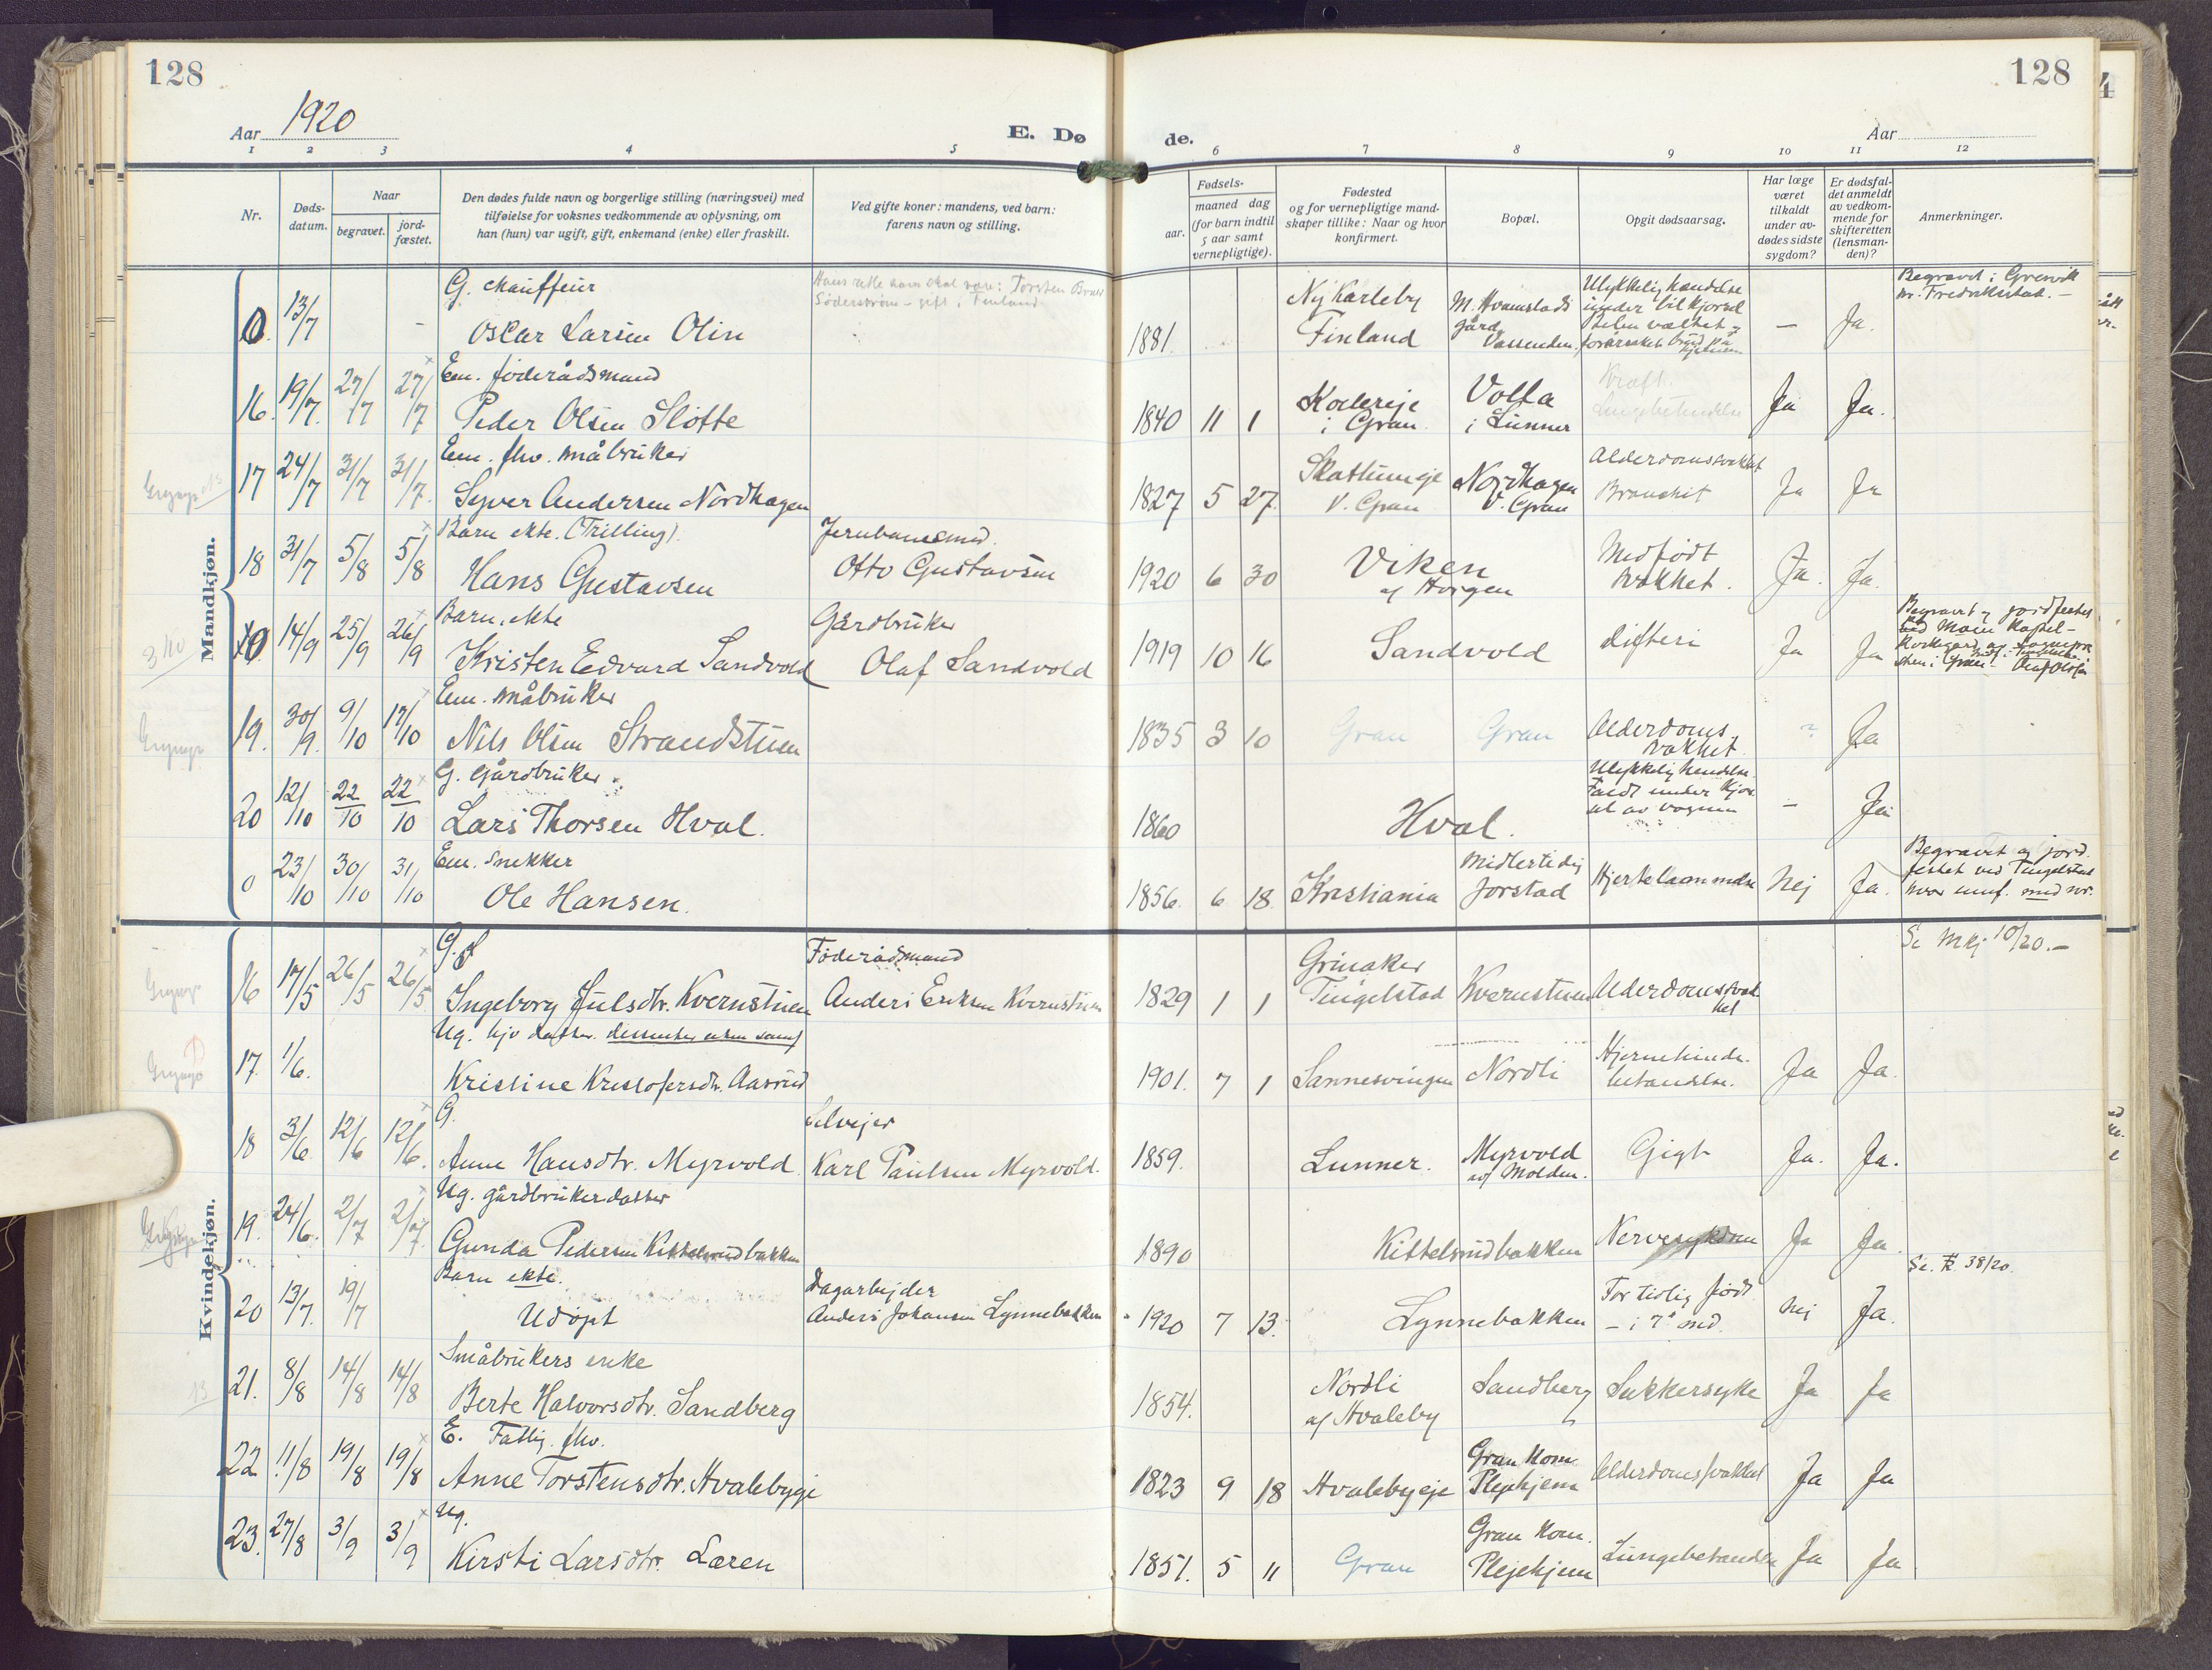 128
128
Aar 1920
E. Dø
de.
Aar
1 2 3 4 5 6 7 8 9 10 11 12
Nr.
Døds-
datum.
Naar
begravet.
jord-
fæstet.
Den dødes fulde navn og borgerlige stilling (næringsvei) med
tilføielse for voksnes vedkommende av oplysning, om
han (hun) var ugift, gift, enkemand (enke) eller fraskilt.
Ved gifte koner: mandens, ved barn:
farens navn og stilling.
Fødsels-
aar.
maaned dag
(for barn indtil
5 aar samt
vernepligtige).
Fødested
og for vernepligtige mand-
skaper tillike: Naar og hvor
konfirmert.
Bopæl.
Opgit dødsaarsag.
Har læge
været
tilkaldt
under av-
dødes sidste
sygdom?
Er dødsfal-
det anmeldt
av vedkom-
mende for
skifteretten
(lensman-
den)?
Anmerkninger.
Mandkjøn.
G. chauffeur
0 13/7 - Oscar Larsen Olin
Hans rette navn skal være: Torsten Bruno
Söderström - gift i Finland
1881 Ny Karleby
Finland
M. Hvamstads
gård,
Vassenden.
Ulykkelig hændelse
under bilkjørsel
Bilen væltet og
forårsaket brud på
hjernen
- Ja.
Begravet i Gresvik
nr. Fredrikstad. -
Em. føderådsmand
16. 19/7. 27/7 27/7 Peder Olsen Sløtte
1840 11 1 i Gran
Volla
i Lunner
Kraft.
Lungebetændelse
Ja Ja.
Em. fhv. småbruker
17 24/7 31/7 31/7. Syver Andersen Nordhagen
1827 5 27. V. Gran
Nordhagen
V. Gran
Alderdomssvakhet
Bronchit
Ja Ja
Barn ekte. (Trilling).
18 31/7 5/8 5/8 Hans Gustavsen
Jernbanesmed.
Otto Gustavsen
1920 6 30 Viken
af Horgen
Medfødt
svakhet.
Ja. Ja.
Barn, ekte
0 14/9 25/9 26/9 Kristen Edvard Sandvold
Gårdbruker
Olaf Sandvold
1919 10 16 Sandvold
difteri
Ja Ja
Begravet og jordfestet
Em. småbruker
19. 30/9. 9/10 17/10 Nils Olsen Strandstuen
1835 3 10 Gran Gran
Alderdoms-
svakhet
? Ja
G. gårdbruker.
20 12/10 22/10 22/10 Lars Thorsen Hval.
1860 Hval.
Ulykkelig hændelse.
Faldt under kjør-
sel av vognen
- Ja
Em. Snekker
0 23/10 30/10 31/10 Ole Hansen.
1856. 6 18. Kristiania
Midlertidig
Jorstad
Hjertelammelse
Nej Ja.
Begravet og jord-
festet ved Tingelstad
hvor innf. med nr.
Kvindekjøn.
G.
16 17/5 26/5 26/5. Ingeborg Julsdtr. Kvernstuen
Føderådsmand
Anders Eriksen Kvernstuen
1829 1 1 Grinaker
Tingelstad
Kvernstuen
Alderdomssvak-
het
Se Mkj 10/20.-
Ug.
17. 1/6. Kristine Kristofersdtr. Aasrud
1901. 7 1 Sannesvingen Nordli
Hjernehinde-
betændelse.
Ja Ja.
G.
18 3/6. 12/6 12/6. Anne Hansdtr. Myrvold.
Selvejer
Karl Paulsen Myrvold.
1859. Lunner.
Myrvold
af Molden.
Gigt
Ja. Ja.
Ug. gårdbrukerdatter
19. 24/6. 2/7 2/7. Gunda Pedersen Kittelsrudbakken
1890 Kittelsrudbakken
Nervesykdom
Ja Ja.
Barn ekte.
20 13/7. 19/7 Udøpt
Dagarbejder
Anders Johansen Lynnebakken
1920 7 13. Lynnebakken
For tidlig født
- i 7. md.
Nej Ja.
Se. F. 38/20.
Småbrukers enke
21. 8/8 14/8 14/8 Berte Halvorsdtr. Sandberg
1854. Nordli
af Hvaleby
Sandberg
Sukkersyke
Ja Ja
E. Fattig. fhv.
22 11/8 19/8 19/8 Anne Torstensdtr. Hvalebyeje
1823 9 18 Hvalebyeje
Gran Kom.
Plejehjem
Alderdomssvakhet
Ja Ja
Ug.
23. 27/8 3/9 3/9 Kirsti Larsdtr. Læren
1851. 5 11 Gran
Gran Kom.
Plejehjem
Lungebetændelse
Ja Ja